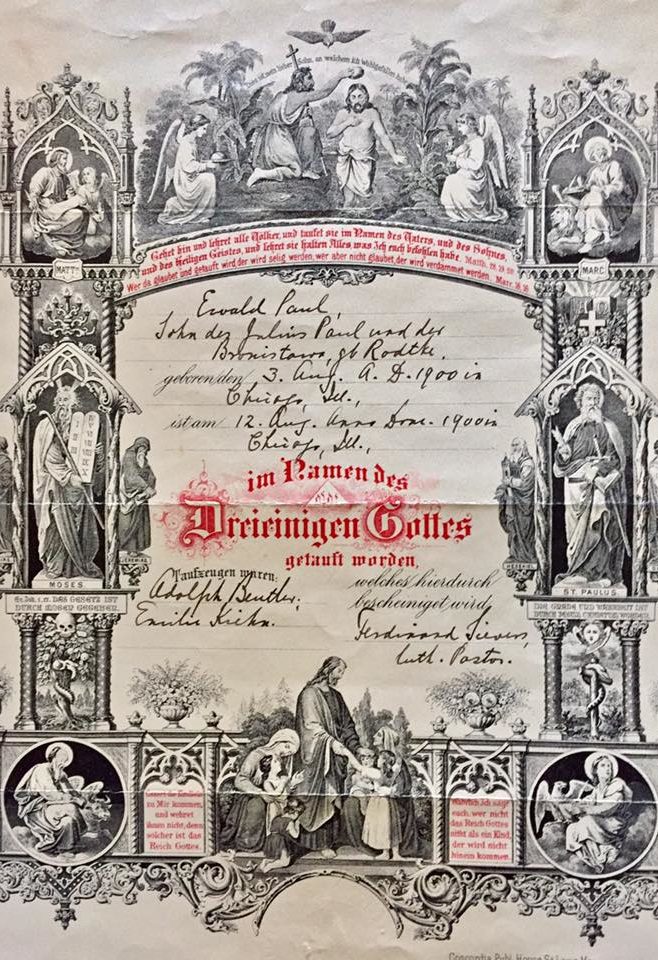 Dies ist mein lieber Sohn, an welchem ich Wohlgefallen habe
Gehet hin und lehret alle Völker, und taufet sie im Namen des Vaters, und des Sohnes,
und des heiligen Geistes, und lehret sie halten Alles was Ich euch befohlen habe. Matth. 28, 19. 20
Wer da glaubet und getauft wird, der wird selig werden, wer aber nicht glaubet, der wird verdammet werden. Marc. 16, 16
MATTH.
MARC.
Ewald Paul,
Sohn des Julius Paul und der
Bronislawa, gb Rodtke.
geboren den 3. Aug. A. D. 1900 in
Chicago, Ill.,
ist am 12. Aug. Anno Dom. 1900 in
Chicago, Ill.,
im Namen des
Dreieinigen Gottes
getauft worden,
Taufzeugen waren:
Adolph Beutler.
Emilie Kiehn.
welches hierdurch
bescheiniget wird
Ferdinand Sievers,
luth. Pastor.
MOSES.
JEREMIAS
ST. PAULUS.
DAS GESETZ IST
DURCH MOSEN GEGEBEN.
DIE GNADE UND WAHRHEIT IST
DURCH JESUM CHRISTUM WORDEN.
Lasset die Kindlein
zu Mir kommen,
und wehret
ihnen nicht, denn
solcher ist das
Reich Gottes.
Wahrlich Ich sage
euch, wer nicht
das Reich Gottes
nimt als ein Kind,
der wird nicht
hinein kommen.
Concordia Publ. House St. Louis Mo.